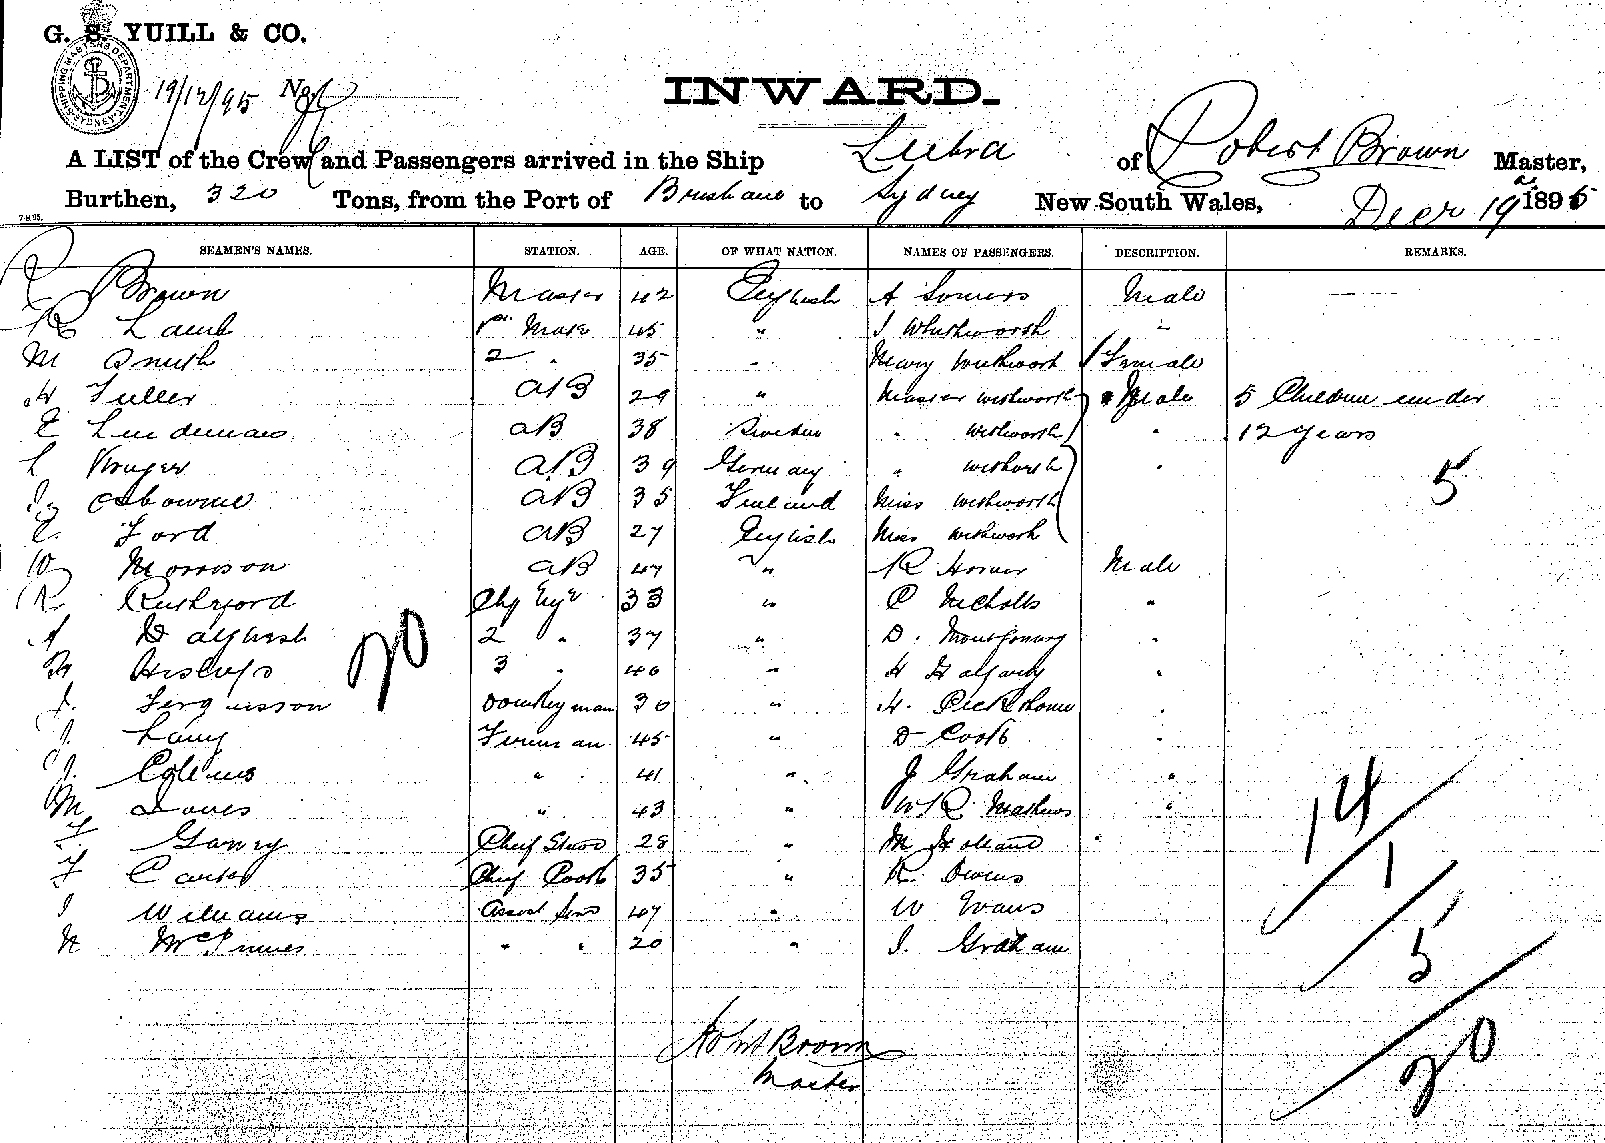 G. S. YUILL & CO.
SHIPPING MASTER'S DEPARTMENT SYDNEY
19/12/95
INWARD.
A LIST of the Crew and Passengers arrived in the Ship Lubra of Robert Brown Master,
Burthen, 320 Tons, from the Port of Brisbane to Sydney New South Wales, Decr 19th 1895
7-8-95.
SEAMEN'S NAMES. STATION. AGE. OF WHAT NATION. NAMES OF PASSENGERS. DESCRIPTION. REMARKS.
R Brown Master 42 English A Somers Male
R Lamb 1st Mate 45 " J Whitworth "
M Smith 2 " 35 " Mary Whitworth 1 Female
W Fuller AB 29 " Master Whitworth Male 5 Children under
E Lindeman AB 38 Sweden " Whitworth " 12 years
L Kruger AB 39 Germany " Whitworth " 5
J Osbourne AB 35 Finland Miss Whitworth
E. Ford AB 27 English Miss Whitworth
W Morrison AB 47 " R Horner Male
R Rutherford Chf Engr 33 " C Nicholls "
A Dalglish 2 " 37 " D. Montgomery "
Hislop 3 " 40 " H Halfacre "
20
J. Fergusson Donkeyman 30 " H. "
J. Lang Fireman 45 " D Cook "
J. Collins " 41 " J Graham "
M Davis " 43 " W R Mathews "
F. Garry Chief Stwd 28 " M Holland "
14
F Carter Chief Cook 35 " R. Owens
1
J Williams Assist Stwd 47 " W Evans
N McInnes " " 20 " J. Graham
5
Robt Brown
20
Master